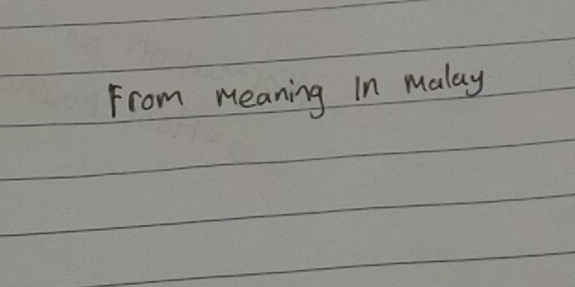 From meaning In Malay